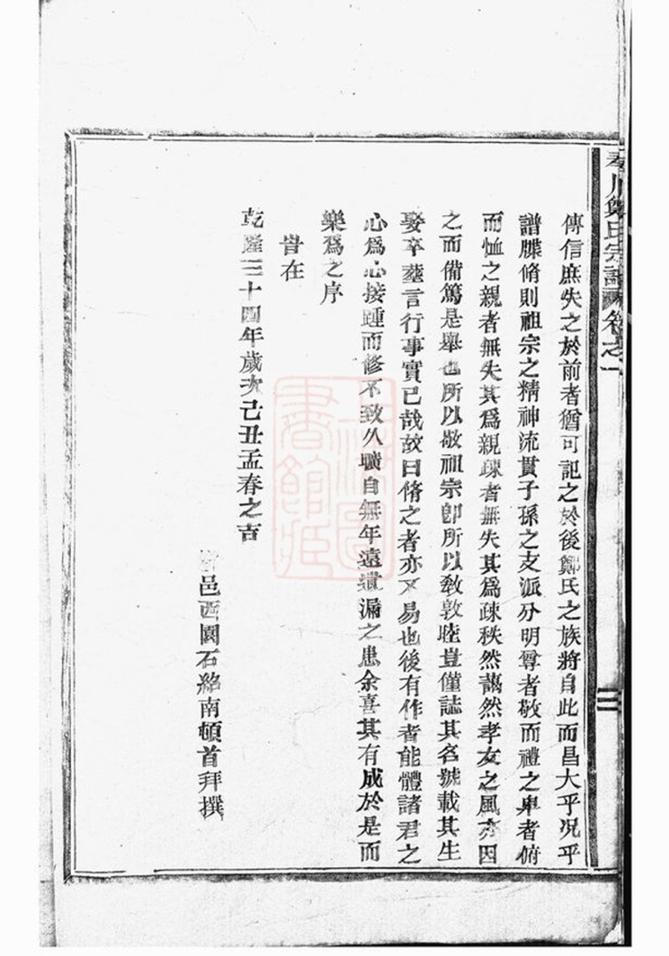 川鄭氏宗譜 卷之一
二
傳信庶失之於前者猶可記之於後鄭氏之族將自此而昌大乎况乎
譜牒脩則祖宗之精神流貫子孫之支派分明尊者敬而禮之卑者俯
而恤之親者無失其為親疎者無失其為疎秩然藹然孝友之風亦因
之而備篤是舉也所以敬祖宗卽所以敎敦睦豈僅誌其名號載其生
娶卒塟言行事實已哉故曰脩之者亦不易也後有作者能體諸君之
心爲心接踵而修不致久曠自無年遠遺漏之患余喜其有成於是而
樂爲之序
旹在
乾隆三十四年歲次己丑孟春之吉
邑西園石絡南頓首拜撰
書館 圖